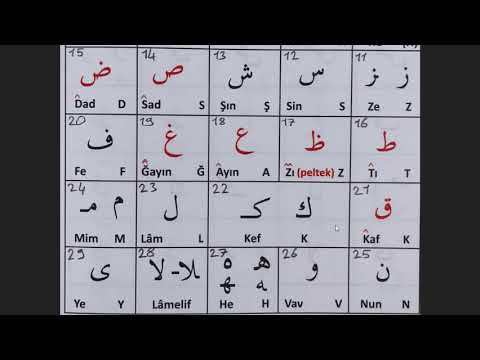 11
ز ز
Ze Z
12
س
Sin S
13
ش
Şın Ş
14
ص
Ŝad S
15
ض
D̂ad D
16
ط
T̂ı T
17
ظ
Ẑı (peltek) Z
18
ع
Âyın A
19
غ
Ğayın Ğ
20
ف
Fe F
21
ق
K̂af K
22
ك كـ
Kef K
23
ل
Lâm L
24
م مـ
Mim M
25
ن
Nun N
26
و
Vav V
27
ه هـ
ـه ـهـ
He H
28
لا - ـلا
Lâmelif
29
ى
Ye Y